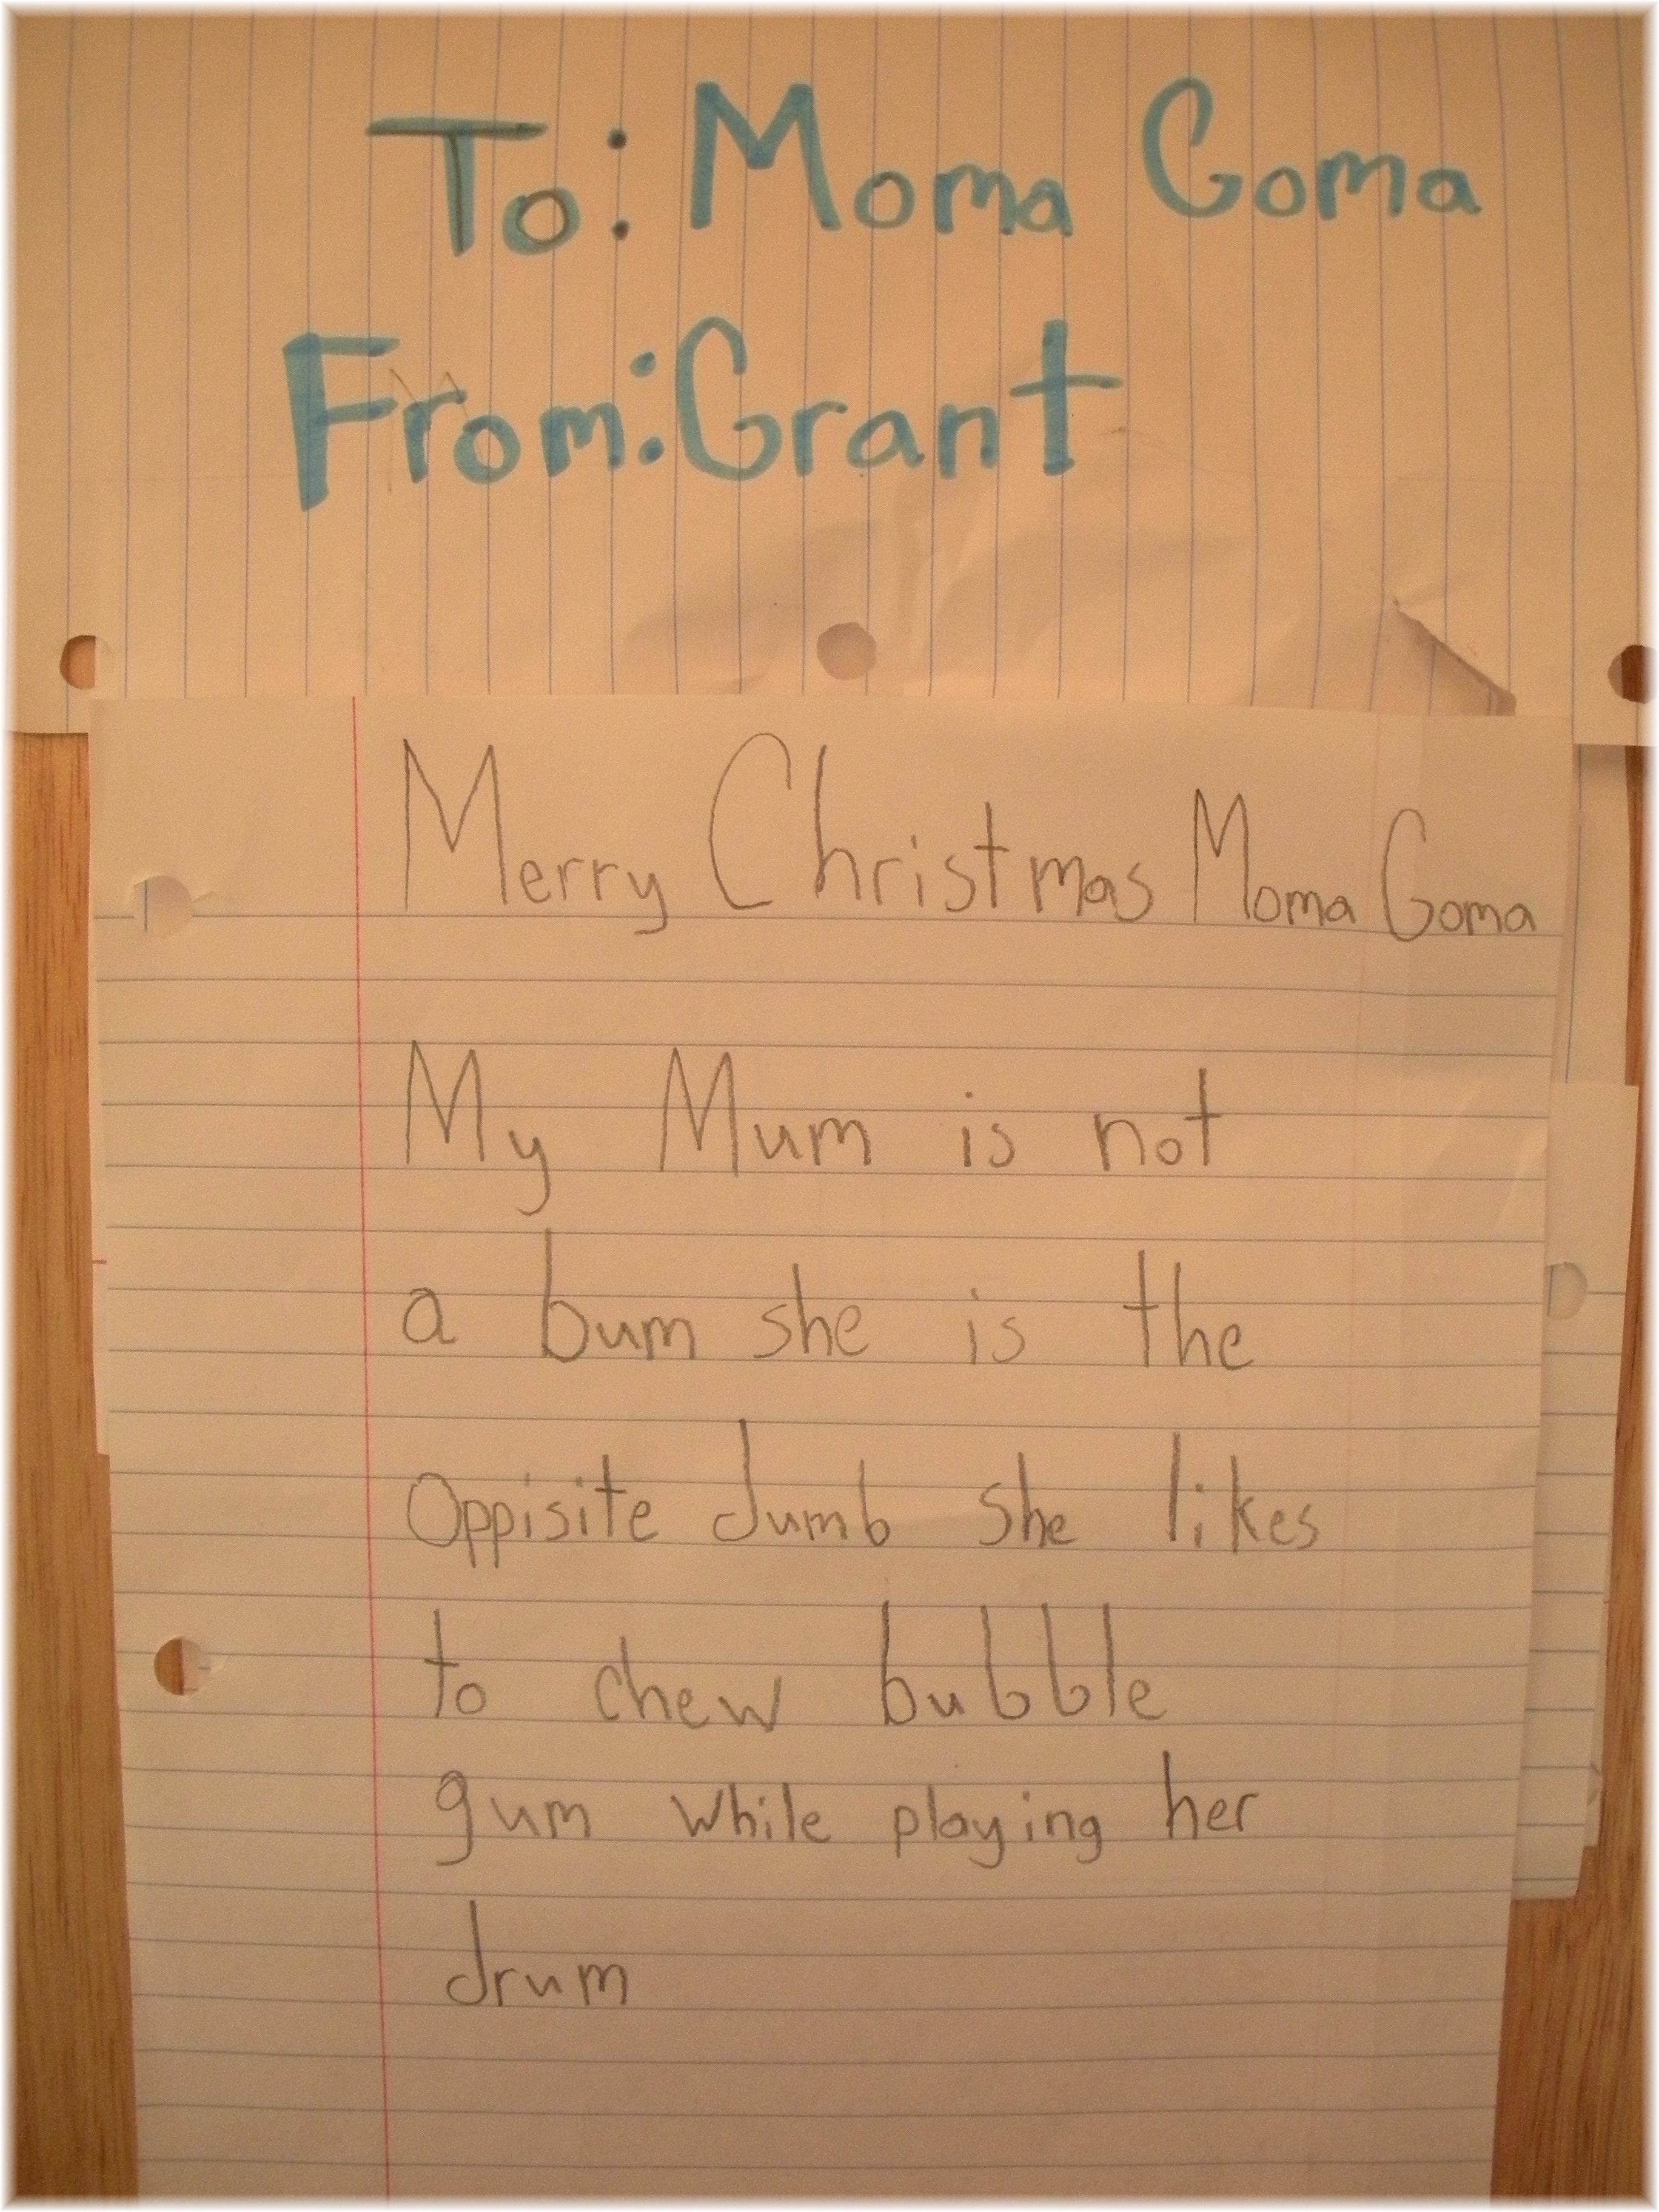 To: Moma Goma
From: Grant
Merry Christmas Moma Goma
My Mum is not
a bum she is the
Oppisite dumb she likes
to chew bubble
gum while playing her
drum